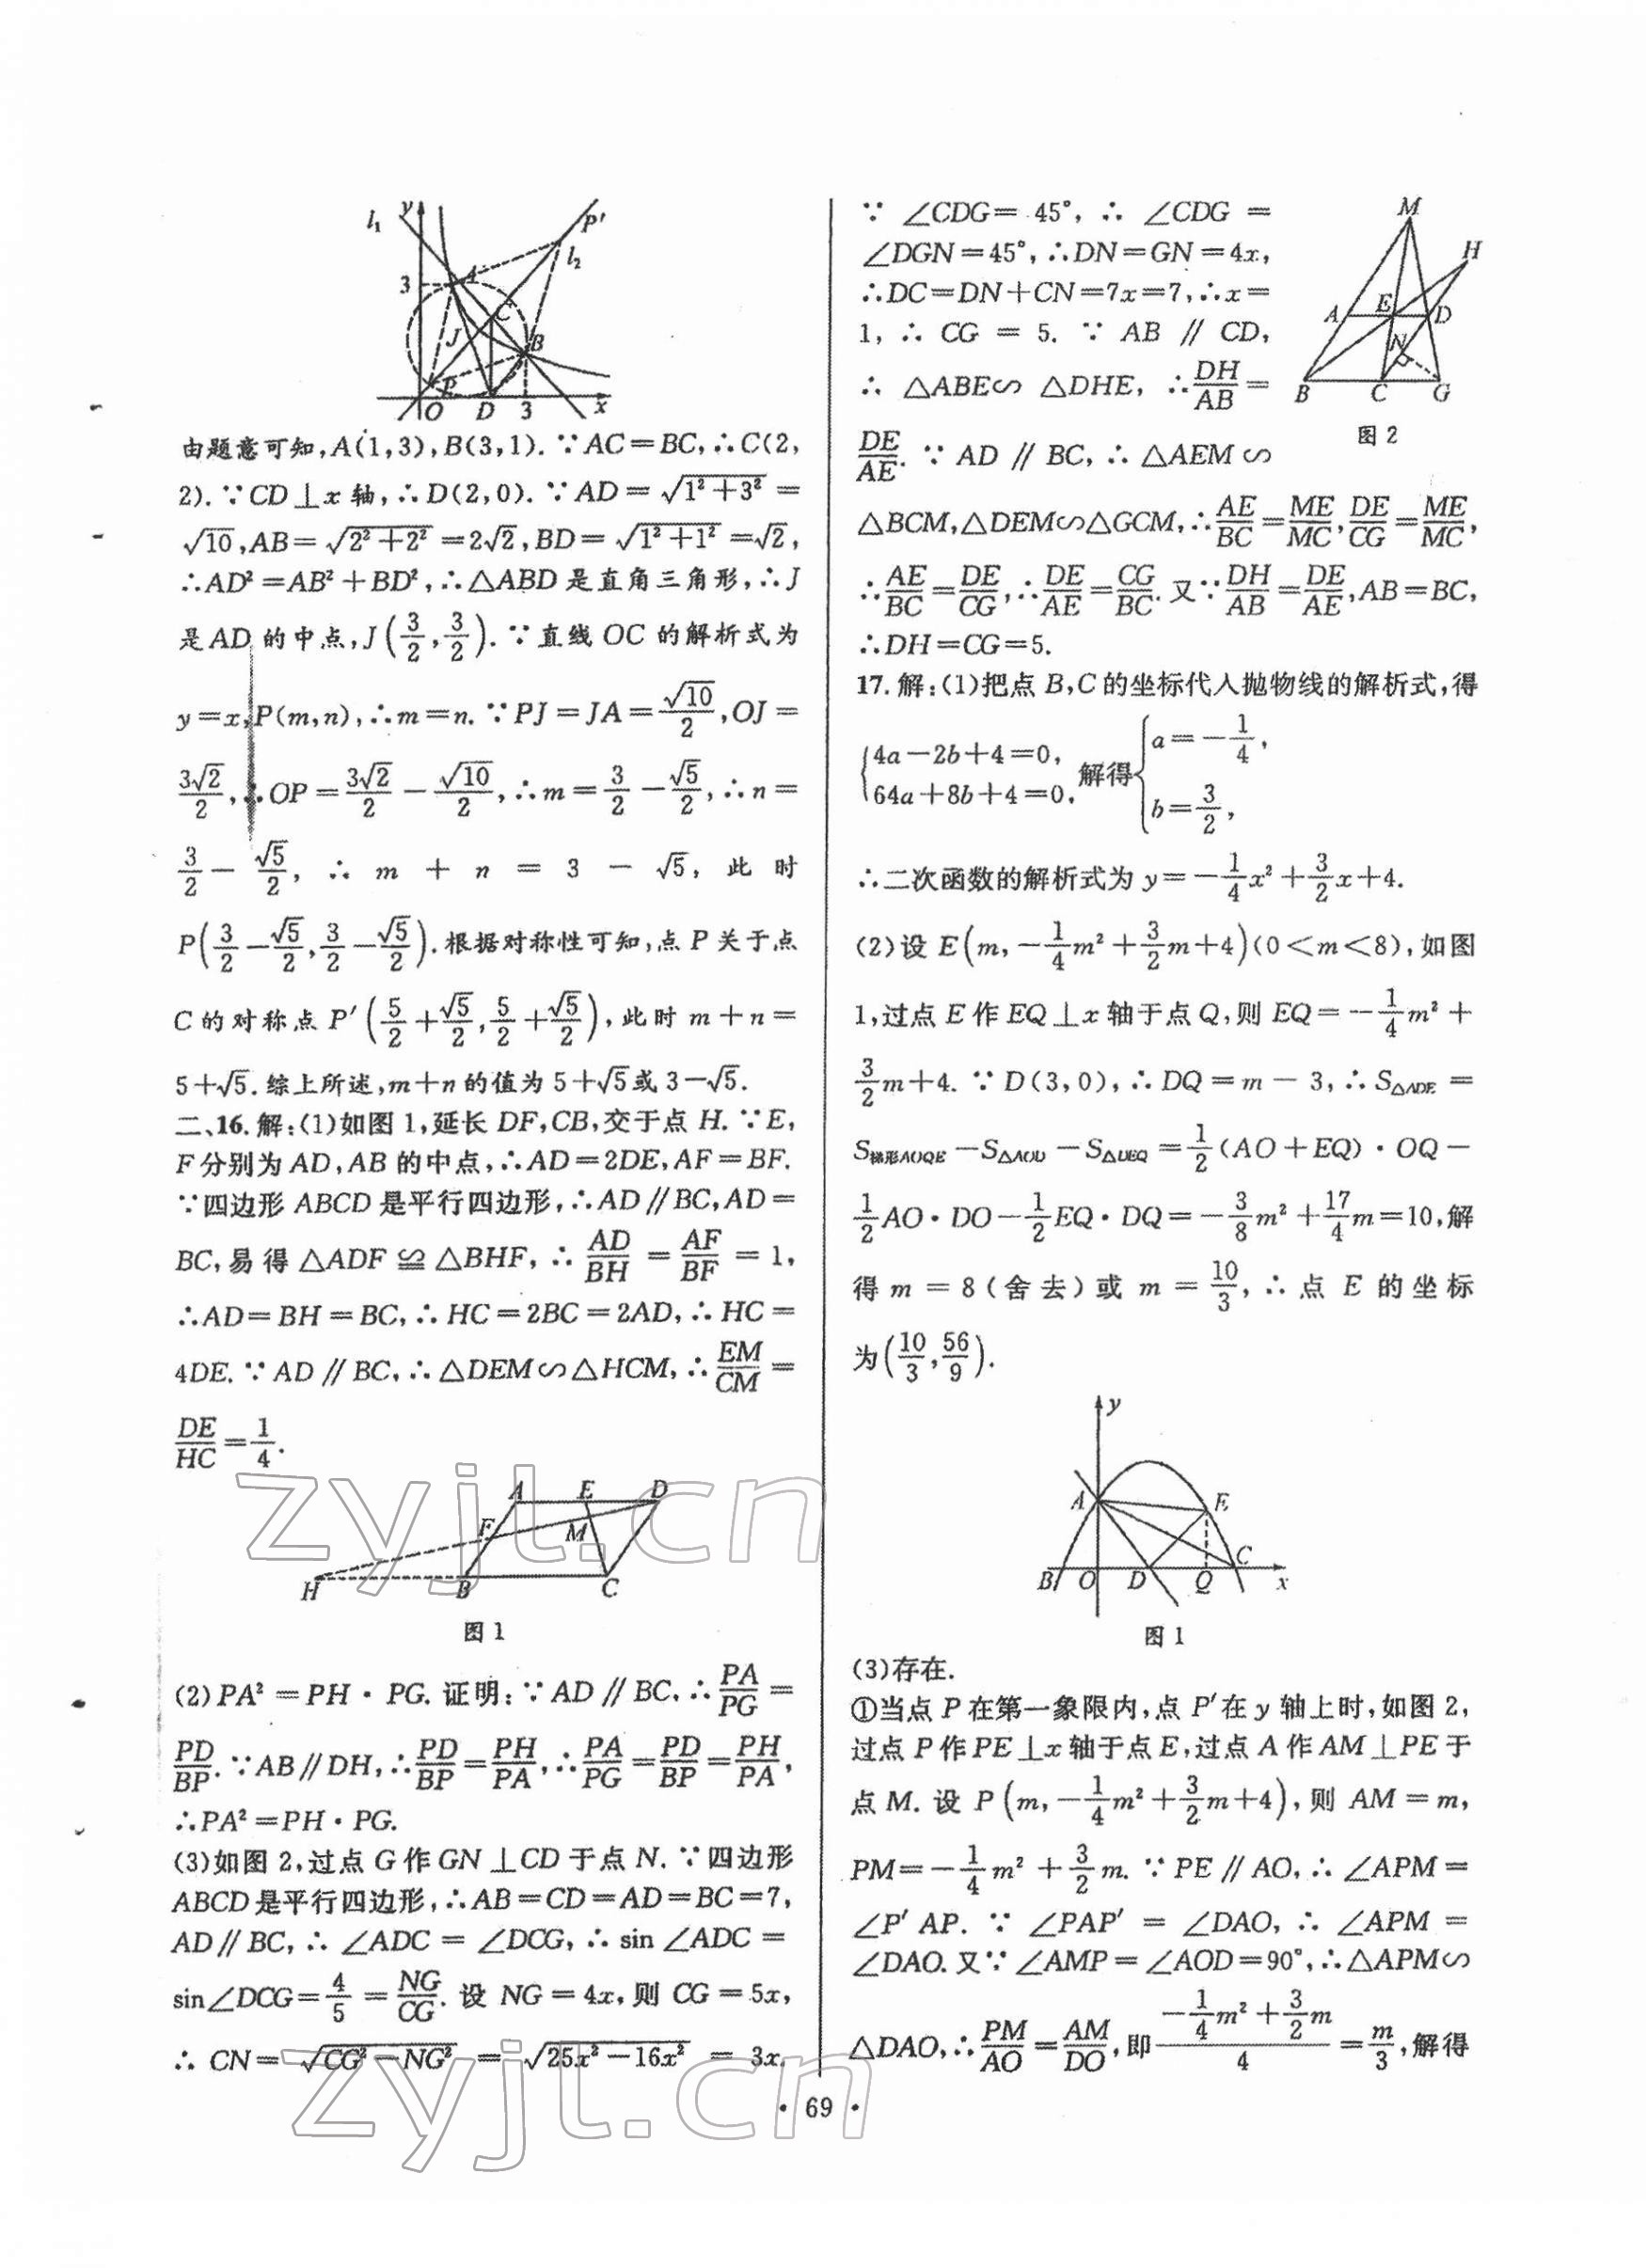 l₁ y P′
l₂
3 A
C
J
B
P
O D 3 x
由题意可知,A(1,3),B(3,1).∵AC=BC,∴C(2,
2).∵CD⊥x轴,∴D(2,0).∵AD=√(1²+3²)=
√10,AB=√(2²+2²)=2√2,BD=√(1²+1²)=√2,
∴AD²=AB²+BD²,∴△ABD是直角三角形,∴J
是AD的中点,J(3/2,3/2).∵直线OC的解析式为
y=x,P(m,n),∴m=n.∵PJ=JA=√10/2,OJ=
3√2/2,∴OP=3√2/2-√10/2,∴m=3/2-√5/2,∴n=
3/2-√5/2,∴m+n=3-√5,此时
P(3/2-√5/2,3/2-√5/2).根据对称性可知,点P关于点
C的对称点P′(5/2+√5/2,5/2+√5/2),此时m+n=
5+√5.综上所述,m+n的值为5+√5或3-√5.
二、16.解:(1)如图1,延长DF,CB,交于点H.∵E,
F分别为AD,AB的中点,∴AD=2DE,AF=BF.
∵四边形ABCD是平行四边形,∴AD∥BC,AD=
BC,易得△ADF≌△BHF,∴AD/BH=AF/BF=1,
∴AD=BH=BC,∴HC=2BC=2AD,∴HC=
4DE.∵AD∥BC,∴△DEM∽△HCM,∴EM/CM=
DE/HC=1/4.
A E D
F M
H B C
图1
(2)PA²=PH·PG.证明:∵AD∥BC,∴PA/PG=
PD/BP.∵AB∥DH,∴PD/BP=PH/PA,∴PA/PG=PD/BP=PH/PA,
∴PA²=PH·PG.
(3)如图2,过点G作GN⊥CD于点N.∵四边形
ABCD是平行四边形,∴AB=CD=AD=BC=7,
AD∥BC,∴∠ADC=∠DCG,∴sin∠ADC=
sin∠DCG=4/5=NG/CG.设NG=4x,则CG=5x,
∴CN=√(CG²-NG²)=√(25x²-16x²)=3x.
∵∠CDG=45°,∴∠CDG=
∠DGN=45°,∴DN=GN=4x,
∴DC=DN+CN=7x=7,∴x=
1,∴CG=5.∵AB∥CD,
∴△ABE∽△DHE,∴DH/AB=
DE/AE.∵AD∥BC,∴△AEM∽
M
H
A E D
N
B C G
图2
△BCM,△DEM∽△GCM,∴AE/BC=ME/MC,DE/CG=ME/MC,
∴AE/BC=DE/CG,∴DE/AE=CG/BC.又∵DH/AB=DE/AE,AB=BC,
∴DH=CG=5.
17.解:(1)把点B,C的坐标代入抛物线的解析式,得
{4a-2b+4=0, 64a+8b+4=0, 解得{a=-1/4, b=3/2,
∴二次函数的解析式为y=-1/4x²+3/2x+4.
(2)设E(m,-1/4m²+3/2m+4)(0<m<8),如图
1,过点E作EQ⊥x轴于点Q,则EQ=-1/4m²+
3/2m+4.∵D(3,0),∴DQ=m-3,∴S△ADE=
S梯形AOQE-S△AOD-S△DEQ=1/2(AO+EQ)·OQ-
1/2AO·DO-1/2EQ·DQ=-3/8m²+17/4m=10,解
得m=8(舍去)或m=10/3,∴点E的坐标
为(10/3,56/9).
y
A E
C
B O D Q x
图1
(3)存在.
①当点P在第一象限内,点P′在y轴上时,如图2,
过点P作PE⊥x轴于点E,过点A作AM⊥PE于
点M.设P(m,-1/4m²+3/2m+4),则AM=m,
PM=-1/4m²+3/2m.∵PE∥AO,∴∠APM=
∠P′AP.∵∠PAP′=∠DAO,∴∠APM=
∠DAO.又∵∠AMP=∠AOD=90°,∴△APM∽
△DAO,∴PM/AO=AM/DO,即(-1/4m²+3/2m)/4=m/3,解得
·69·
zyjl.cn
zyjl.cn